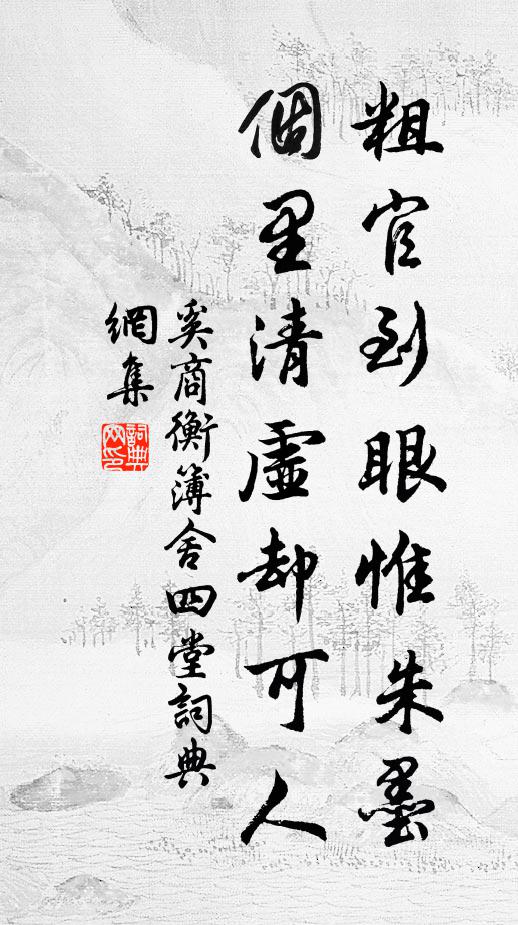 粗官到眼惟朱墨
個里清虛却可人
奚商衡簿舍四堂詞典
網集
詞典
网印